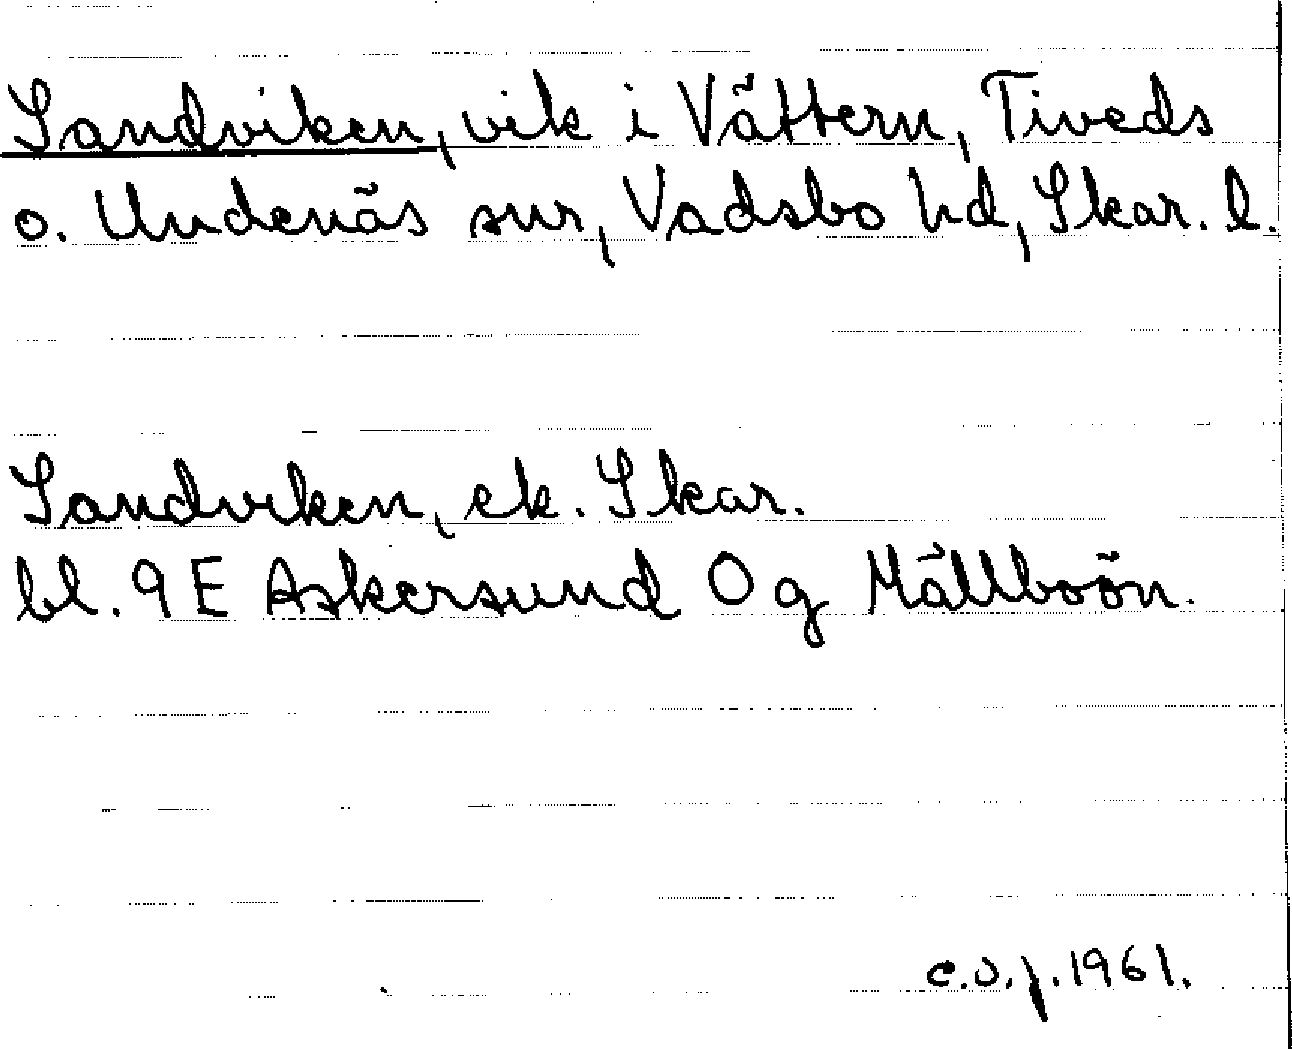 Sandviken, vik i Vättern, Tiveds
o. Undenäs snr, Vadsbo hd, Skar. l.
Sandviken, ek. Skar.
bl. 9 E Askersund 0 g Mällboön.
c.o.j. 1961.